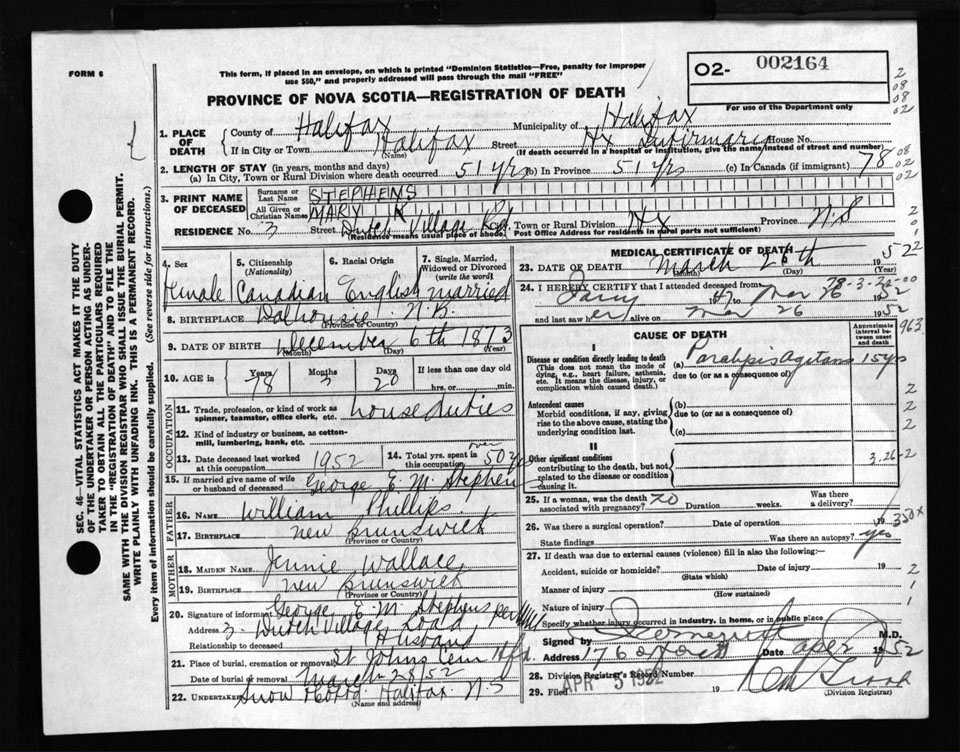 FORM 6
This form, if placed in an envelope, on which is printed "Dominion Statistics—Free, penalty for improper
use $50," and properly addressed will pass through the mail "FREE"
PROVINCE OF NOVA SCOTIA—REGISTRATION OF DEATH
02- 002164
For use of the Department only
1. PLACE OF DEATH
County of Halifax Municipality of Halifax
If in City or Town Halifax (Name) Street Hx Infirmary House No.
(If death occurred in a hospital or institution, give the name instead of street and number)
2. LENGTH OF STAY (in years, months and days)
(a) In City, Town or Rural Division where death occurred 51 yrs (b) In Province 51 yrs (c) In Canada (if immigrant) 78
3. PRINT NAME OF DECEASED
Surname or Last Name STEPHENS
All Given or Christian Names MARY K
RESIDENCE No. 3 Street Dutch Village Rd. Town or Rural Division Hx Province N.S
(Residence means usual place of abode. Post Office Address for residents in rural parts not sufficient)
4. Sex Female
5. Citizenship (Nationality) Canadian
6. Racial Origin English
7. Single, Married, Widowed or Divorced (write the word) married
8. BIRTHPLACE Dalhousie N.B.
(Province or Country)
9. DATE OF BIRTH December 6th 1873
(Month) (Day) (Year)
10. AGE in Years 78 Months 3 Days 20 If less than one day hrs. or min.
OCCUPATION
11. Trade, profession, or kind of work as spinner, teamster, office clerk, etc. house duties
12. Kind of industry or business, as cotton-mill, lumbering, bank, etc.
13. Date deceased last worked at this occupation 1952
14. Total yrs. spent in this occupation over 50 yrs
15. If married give name of wife or husband of deceased George E. M. Stephens
FATHER
16. NAME William Phillips
17. BIRTHPLACE New Brunswick
(Province or Country)
MOTHER
18. MAIDEN NAME Jennie Wallace
19. BIRTHPLACE New Brunswick
(Province or Country)
20. Signature of informant George E. M. Stephens per
Address 3 Dutch Village Road
Relationship to deceased Husband
21. Place of burial, cremation or removal St Johns Cem
Date of burial or removal March 28/52
22. UNDERTAKER Snow Halifax N.S
(Name and address)
MEDICAL CERTIFICATE OF DEATH
23. DATE OF DEATH March 26th 1952
(Month) (Day) (Year)
24. I HEREBY CERTIFY that I attended deceased from
47 to Mar 26 1952
and last saw her alive on Mar 26 1952
CAUSE OF DEATH
Approximate interval between onset and death
I
Disease or condition directly leading to death
(This does not mean the mode of dying, e.g., heart failure, asthenia, etc. It means the disease, injury, or complication which caused death.)
(a) Paralysis Agitans 15 yrs
due to (or as a consequence of)
Antecedent causes
Morbid conditions, if any, giving rise to the above cause, stating the underlying condition last.
(b)
due to (or as a consequence of)
(c)
II
Other significant conditions
contributing to the death, but not related to the disease or condition causing it.
3.26-2
25. If a woman, was the death associated with pregnancy? no Duration weeks. Was there a delivery?
26. Was there a surgical operation? Date of operation 19
State findings Was there an autopsy? yes
350x
27. If death was due to external causes (violence) fill in also the following:—
Accident, suicide or homicide? Date of injury 19
(State which)
Manner of injury
(How sustained)
Nature of injury
Specify whether injury occurred in industry, in home, or in public place
Signed by M.D.
Address Date 52
28. Division Registrar's Record Number
29. Filed APR 5 1952 19
(Division Registrar)
SEC. 46—VITAL STATISTICS ACT MAKES IT THE DUTY
OF THE UNDERTAKER OR PERSON ACTING AS UNDER-
TAKER TO OBTAIN ALL THE PARTICULARS REQUIRED
IN THE "REGISTRATION OF DEATH" AND TO FILE THE
SAME WITH THE DIVISION REGISTRAR WHO SHALL ISSUE THE BURIAL PERMIT.
WRITE PLAINLY WITH UNFADING INK. THIS IS A PERMANENT RECORD.
Every item of information should be carefully supplied. (See reverse side for instructions.)